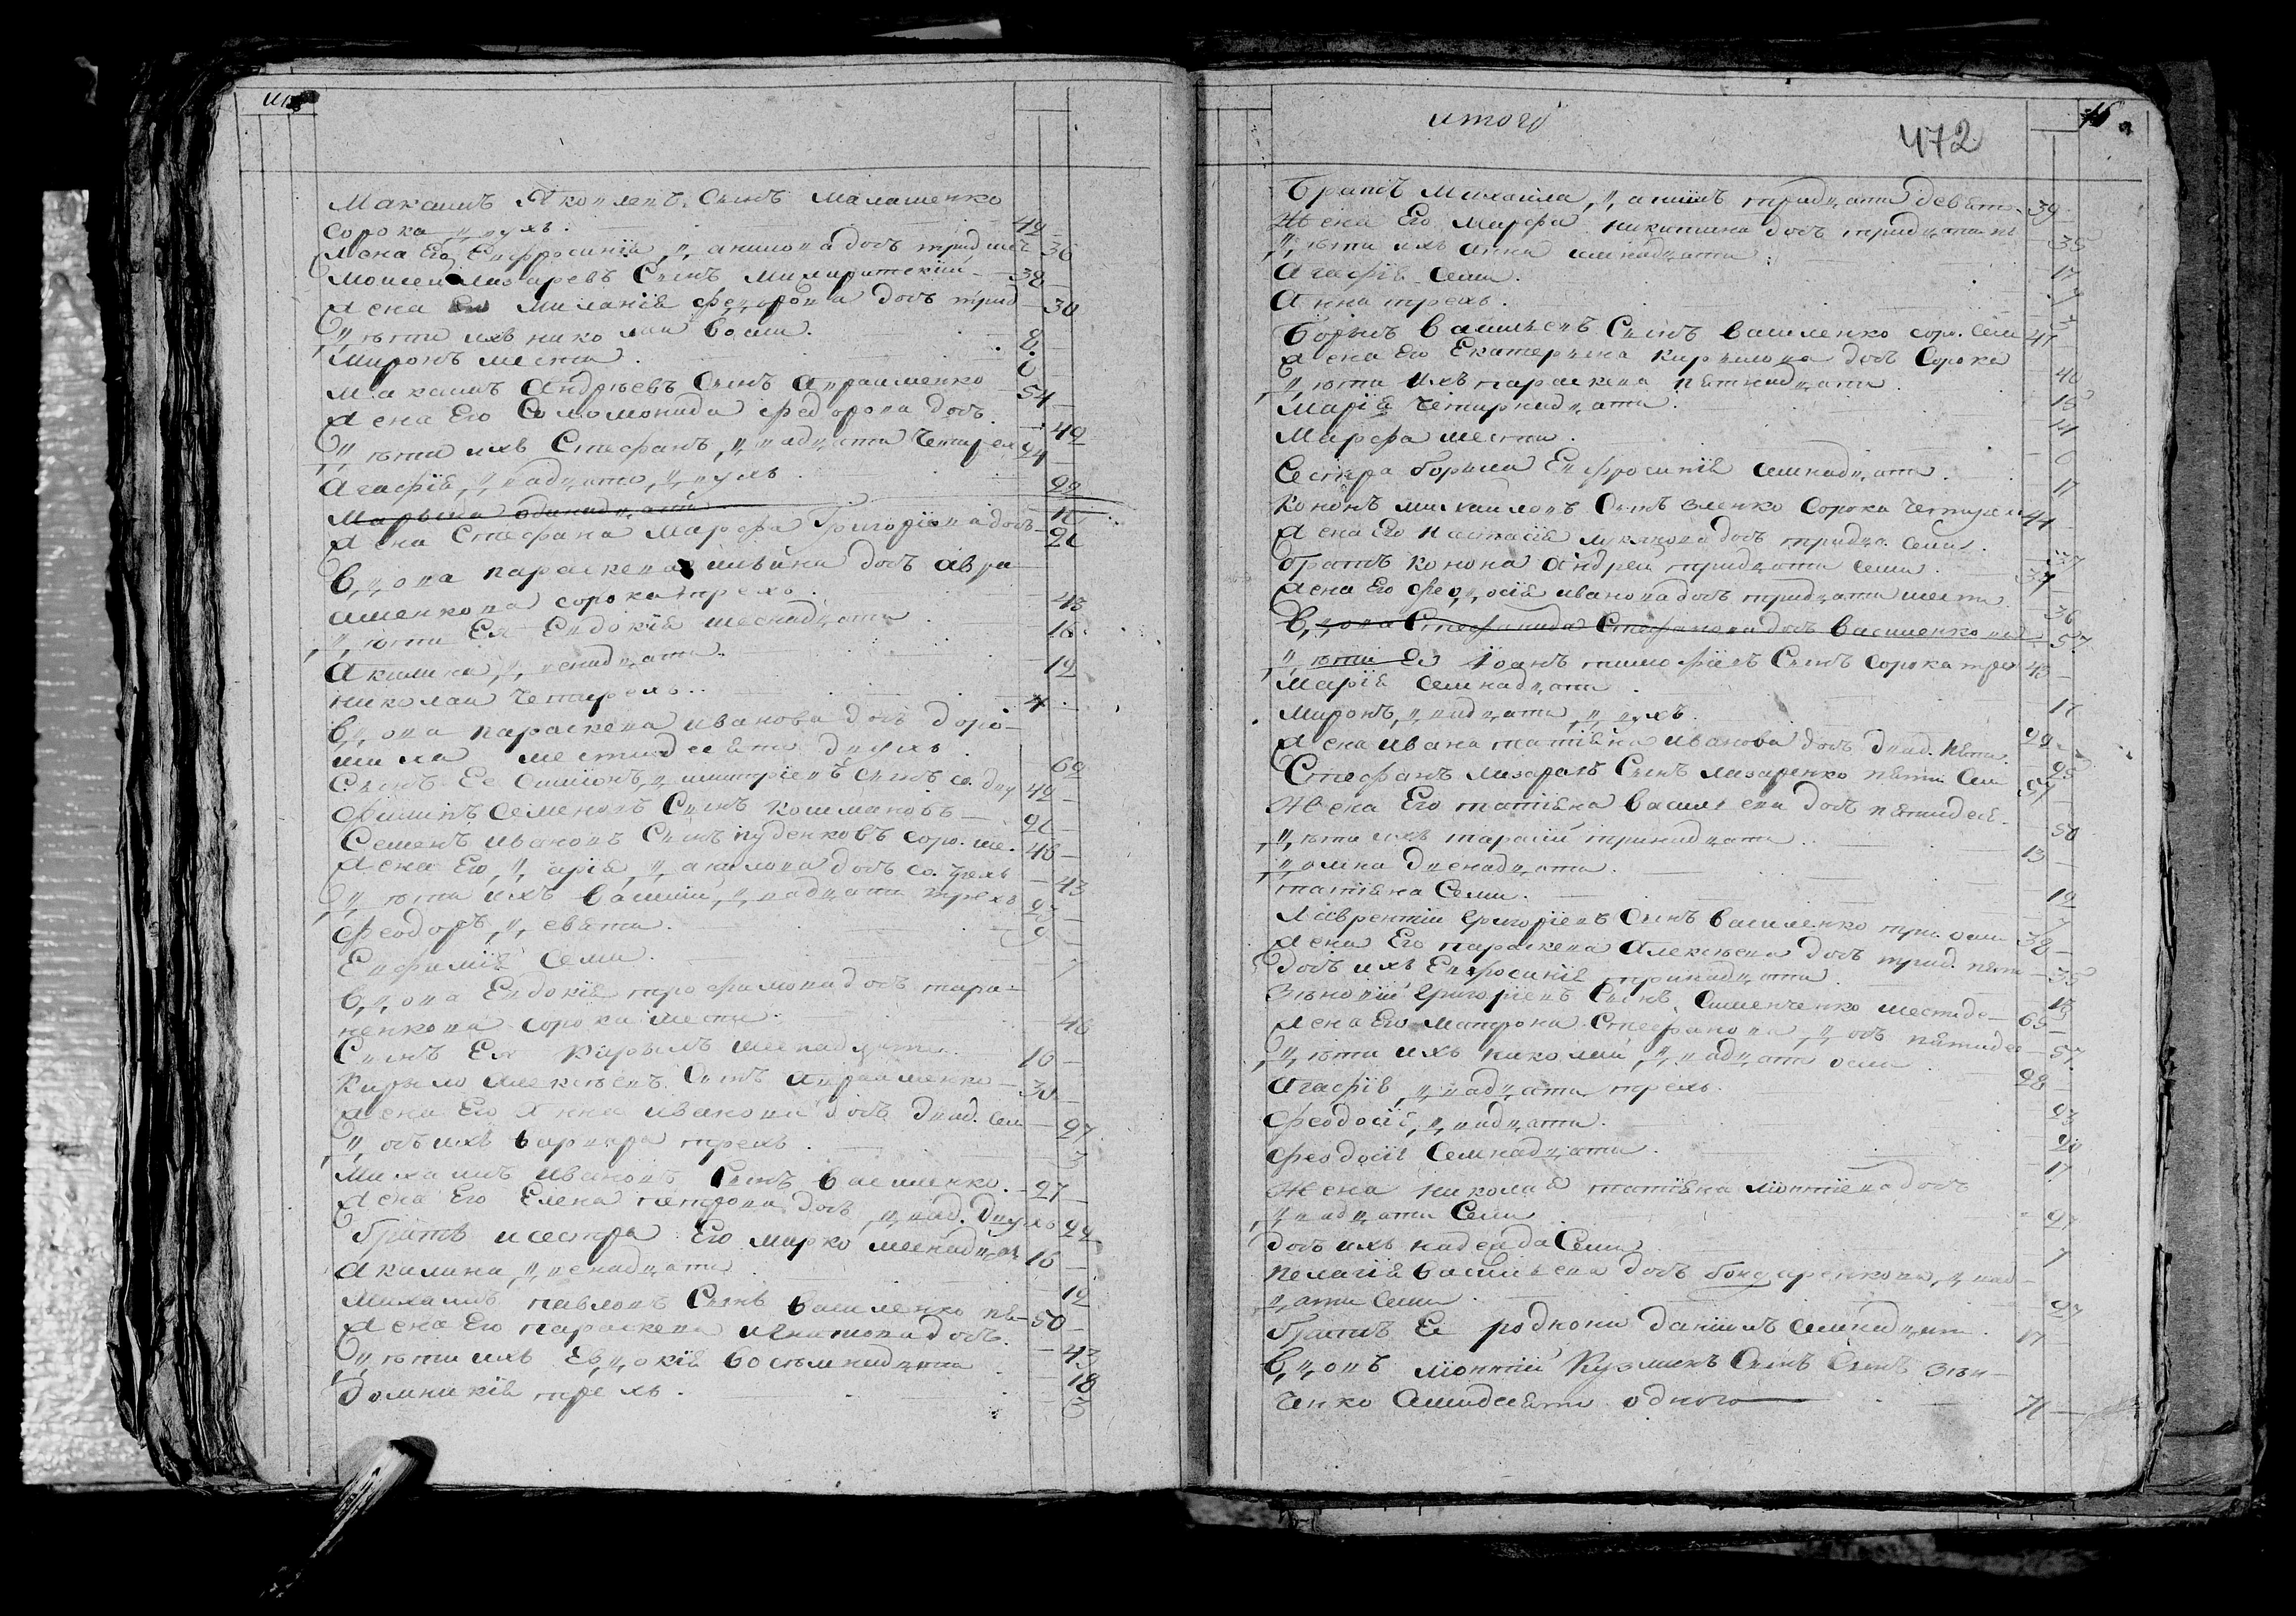 Максимъ Яковлевъ Сынъ Малашенко
сорока двухъ. 42
Жена Его Ефросинія данилова дочъ тридцать 36
Моисей Лазаревъ Сынъ 38
Жена Его Миланія федорова дочъ трид 30
дѣти ихъ николай восми. 8
Миронъ шести. 6
Максимъ Андрѣевъ Сынъ Авраименко 54
Жена Его Соломонида федорова дочъ. 49
дѣти ихъ Стефанъ двадцати четирех 24
Агафія двадцати двухъ. 22
Марына одинадцати 11
Жена Стефана Марфа Григоріева дочъ 21
Вдова параскева ильина дочъ авра
аменкова сорока трехъ. 43
дѣти Ея Евдокія шеснадцати 16
Акилина двенадцати. 12
николай четирехъ. 4
Вдова параскева иванова дочъ
шестидесяти двухъ 62
Сынъ Ее Симіонъ дмитріевъ сынъ со. дву 42
Филипъ Семеновъ Сынъ Кошмановъ 21
Семенъ ивановъ Сынъ пуденковъ соро. ше. 46
Жена Его дарія данилова дочъ со. трехъ 43
дѣти ихъ Василій двадцати трехъ 23
Феодоръ девяти. 9
Евфимія Семи. 7
Вдова Евдокія трофимова дочъ тара-
ненкова сорока шести. 46
Сынъ Ея Кирылъ шеснадцати 16
Кирыло Алексѣевъ Сынъ Авраименко 30
Жена Его Анна иванова дочъ двад. сем 27
дочъ ихъ варвара трехъ. 3
Михаилъ ивановъ Сынъ василенко. 27
Жена Его Елена петрова дочъ двад. двухъ 22
Братъ и сестра Его Марко шеснадцат 16
Акилина двенадцати 12
Михаилъ павловъ Сынъ василенко пя- 50
Жена Его параскева игнатова дочъ. 43
дѣти ихъ Евдокія восемнадцати 18
Домникія трехъ. 3
итого
472
Братъ Михаила данилъ тридцати девят 39
Жена Его Марфа никитина дочъ тридцати пя 35
дѣти ихъ анна семнадцати. 17
Агафія Семи. 7
Анна трехъ. 3
Борысъ васильевъ Сынъ василенко сор. семи 47
Жена Его Екатерына Кирылова дочъ Сорока 40
дѣти ихъ параскева пятнадцати. 15
Марія четирнадцати. 14
Марфа шести. 6
Сестра борыса Ефросинія семнадцати. 17
Кононъ михаиловъ Сынъ Зленко Сорока четирех 44
Жена Его настасія лукянова дочъ тридца. семи. 37
братъ конона Андрей тридцати семи. 37
Жена Его феодосія иванова дочъ тридцати шести 36
Вдова Стефанида Стефанова дочъ василенкова 57
дѣти Ея Іоанъ тимофіевъ Сынъ сорока трех 43
Марія семнадцати. 17
Миронъ двадцати двухъ. 22
Жена ивана татіяна иванова дочъ двад. пяти. 25
Стефанъ лазаревъ Сынъ лазаренко пяти. Сем 57
Жена Его татіяна васильева дочъ пятидеся. 50
дѣти ихъ тарасій тринадцати. 13
домна двенадцати. 12
татіяна Семи. 7
Лаврентій григоріевъ Сынъ василенко три. осми 38
Жена Его параскева алексѣева дочъ трид. пяти 35
дочъ ихъ Ефросинія тринадцати. 13
Зѣновій григоріевъ Сынъ Сименченко шестиде- 65
Жена Его матрона Стефанова дочъ пятидес 57
дѣти ихъ николай двадцати осми 28
Агафія двадцати трехъ. 23
Феодосій двадцати. 20
Феодосія Семнадцати. 17
Жена николая татіяна дочъ
двадцати Семи 27
дочъ ихъ надежда Семи 7
Пелагія васильева дочъ бондаренкова двад-
цати Семи 27
братъ Ея родноки даніилъ семнадцати. 17
Вдовъ Кузминъ Сынъ Сынъ Зѣн-
ченко Семидесяти одного 71